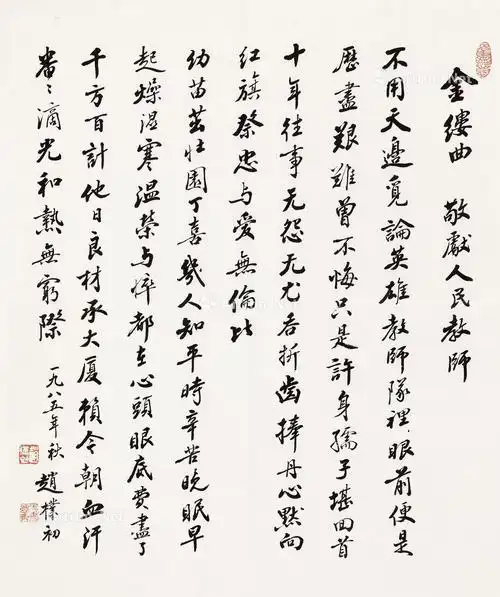 金缕曲 敬獻人民教師
不用天邊覓論英雄教師隊裡眼前便是
歷盡艱難曾不悔只是許身孺子堪回首
十年往事无怨无尤吞折齒捧丹心默向
红旗祭忠与愛無倫比
幼苗茁壮園丁喜幾人知平時辛苦晚眠早
起燥湿寒温榮与悴都在心頭眼底費盡了
千方百計他日良材承大厦賴今朝血汗
番〻滴光和熱無窮際
一九八五年秋 趙樸初